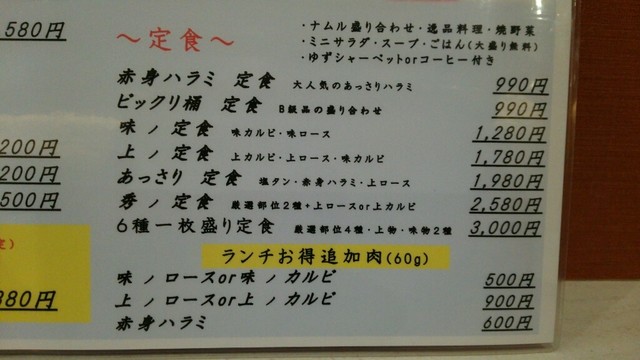 580円
〜定食〜
・ナムル盛り合わせ・逸品料理・焼野菜
・ミニサラダ・スープ・ごはん(大盛り無料)
・ゆずシャーベットorコーヒー付き
赤身ハラミ 定食 大人気のあっさりハラミ 990円
ビックリ桶 定食 B級品の盛り合わせ 990円
味ノ定食 味カルビ・味ロース 1,280円
上ノ定食 上カルビ・上ロース・味カルビ 1,780円
あっさり 定食 塩タン・赤身ハラミ・上ロース 1,980円
秀ノ定食 厳選部位2種+上ロースor上カルビ 2,580円
6種一枚盛り定食 厳選部位4種・上物・味物2種 3,000円
200円
200円
500円
380円
ランチお得追加肉(60g)
味ノロースor味ノカルビ 500円
上ノロースor上ノカルビ 900円
赤身ハラミ 600円